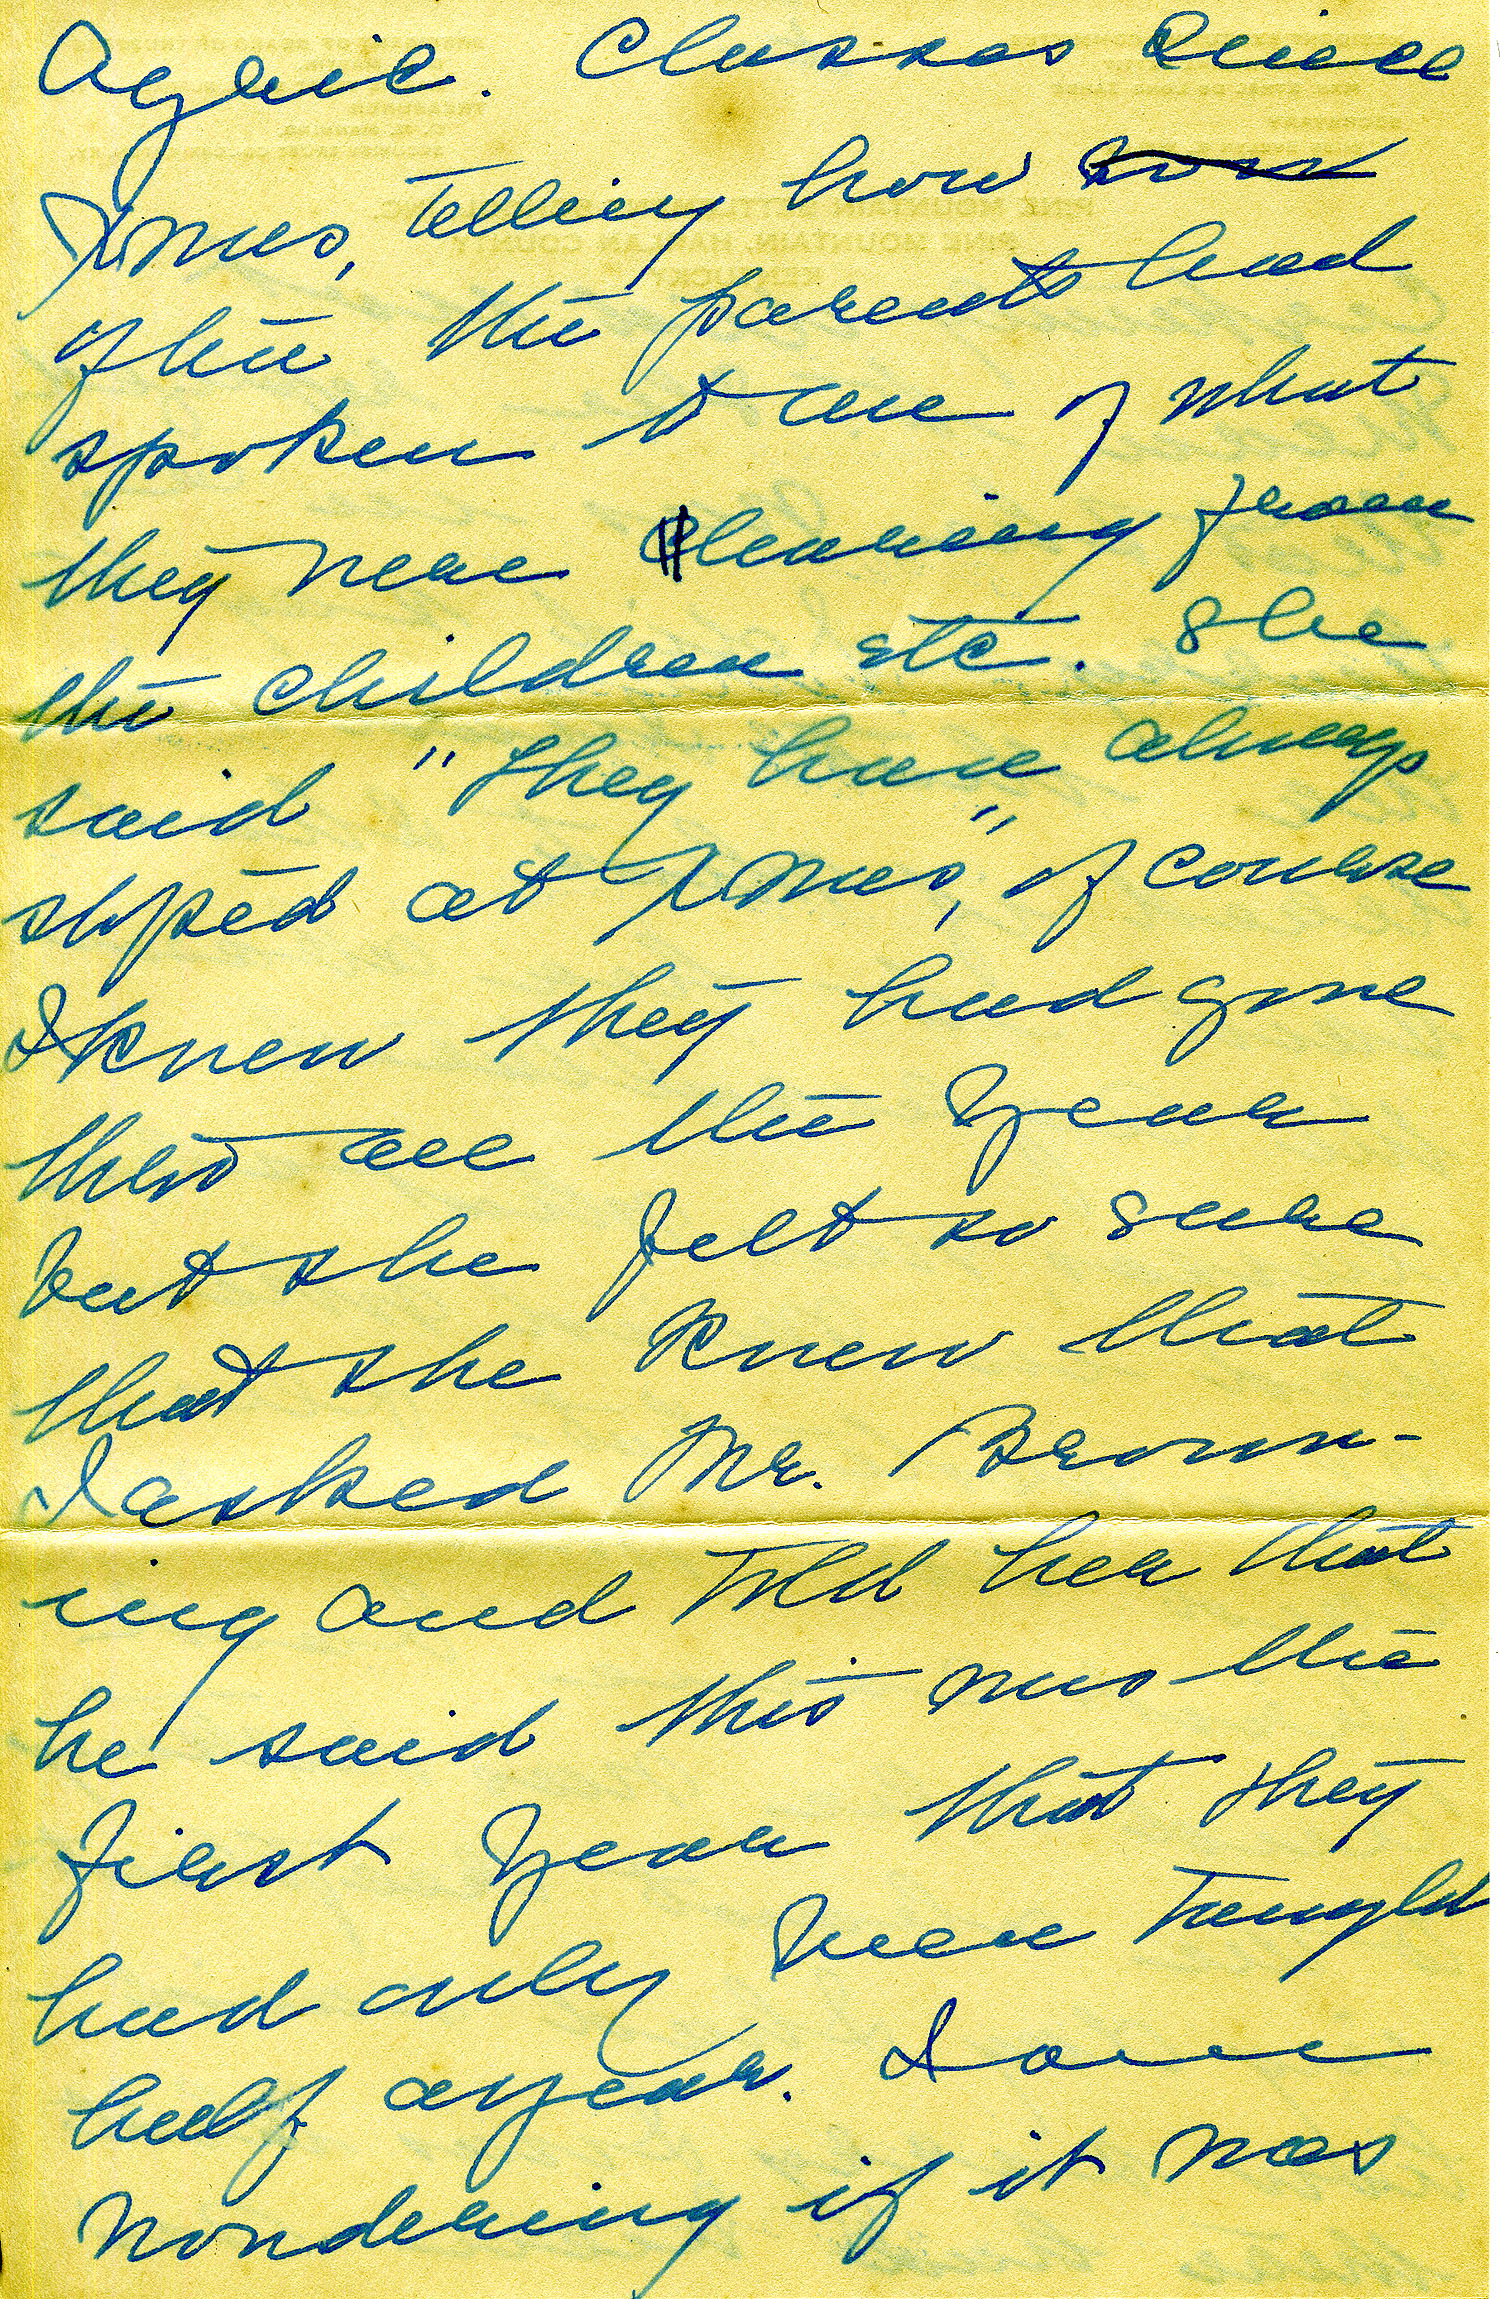 Agric. Classes Since
Xmas, telling how
often the parents had
spoken to me of what
they were learning from
the children etc. She
said "they have always
stoped at Xmas," of course
I knew they had gone
thru all the year
but she felt so sure
that she knew that
I asked Mr. Brown-
ing and told her that
he said this was the
first year that they
had only been taught
half a year. I am
wondering if it was